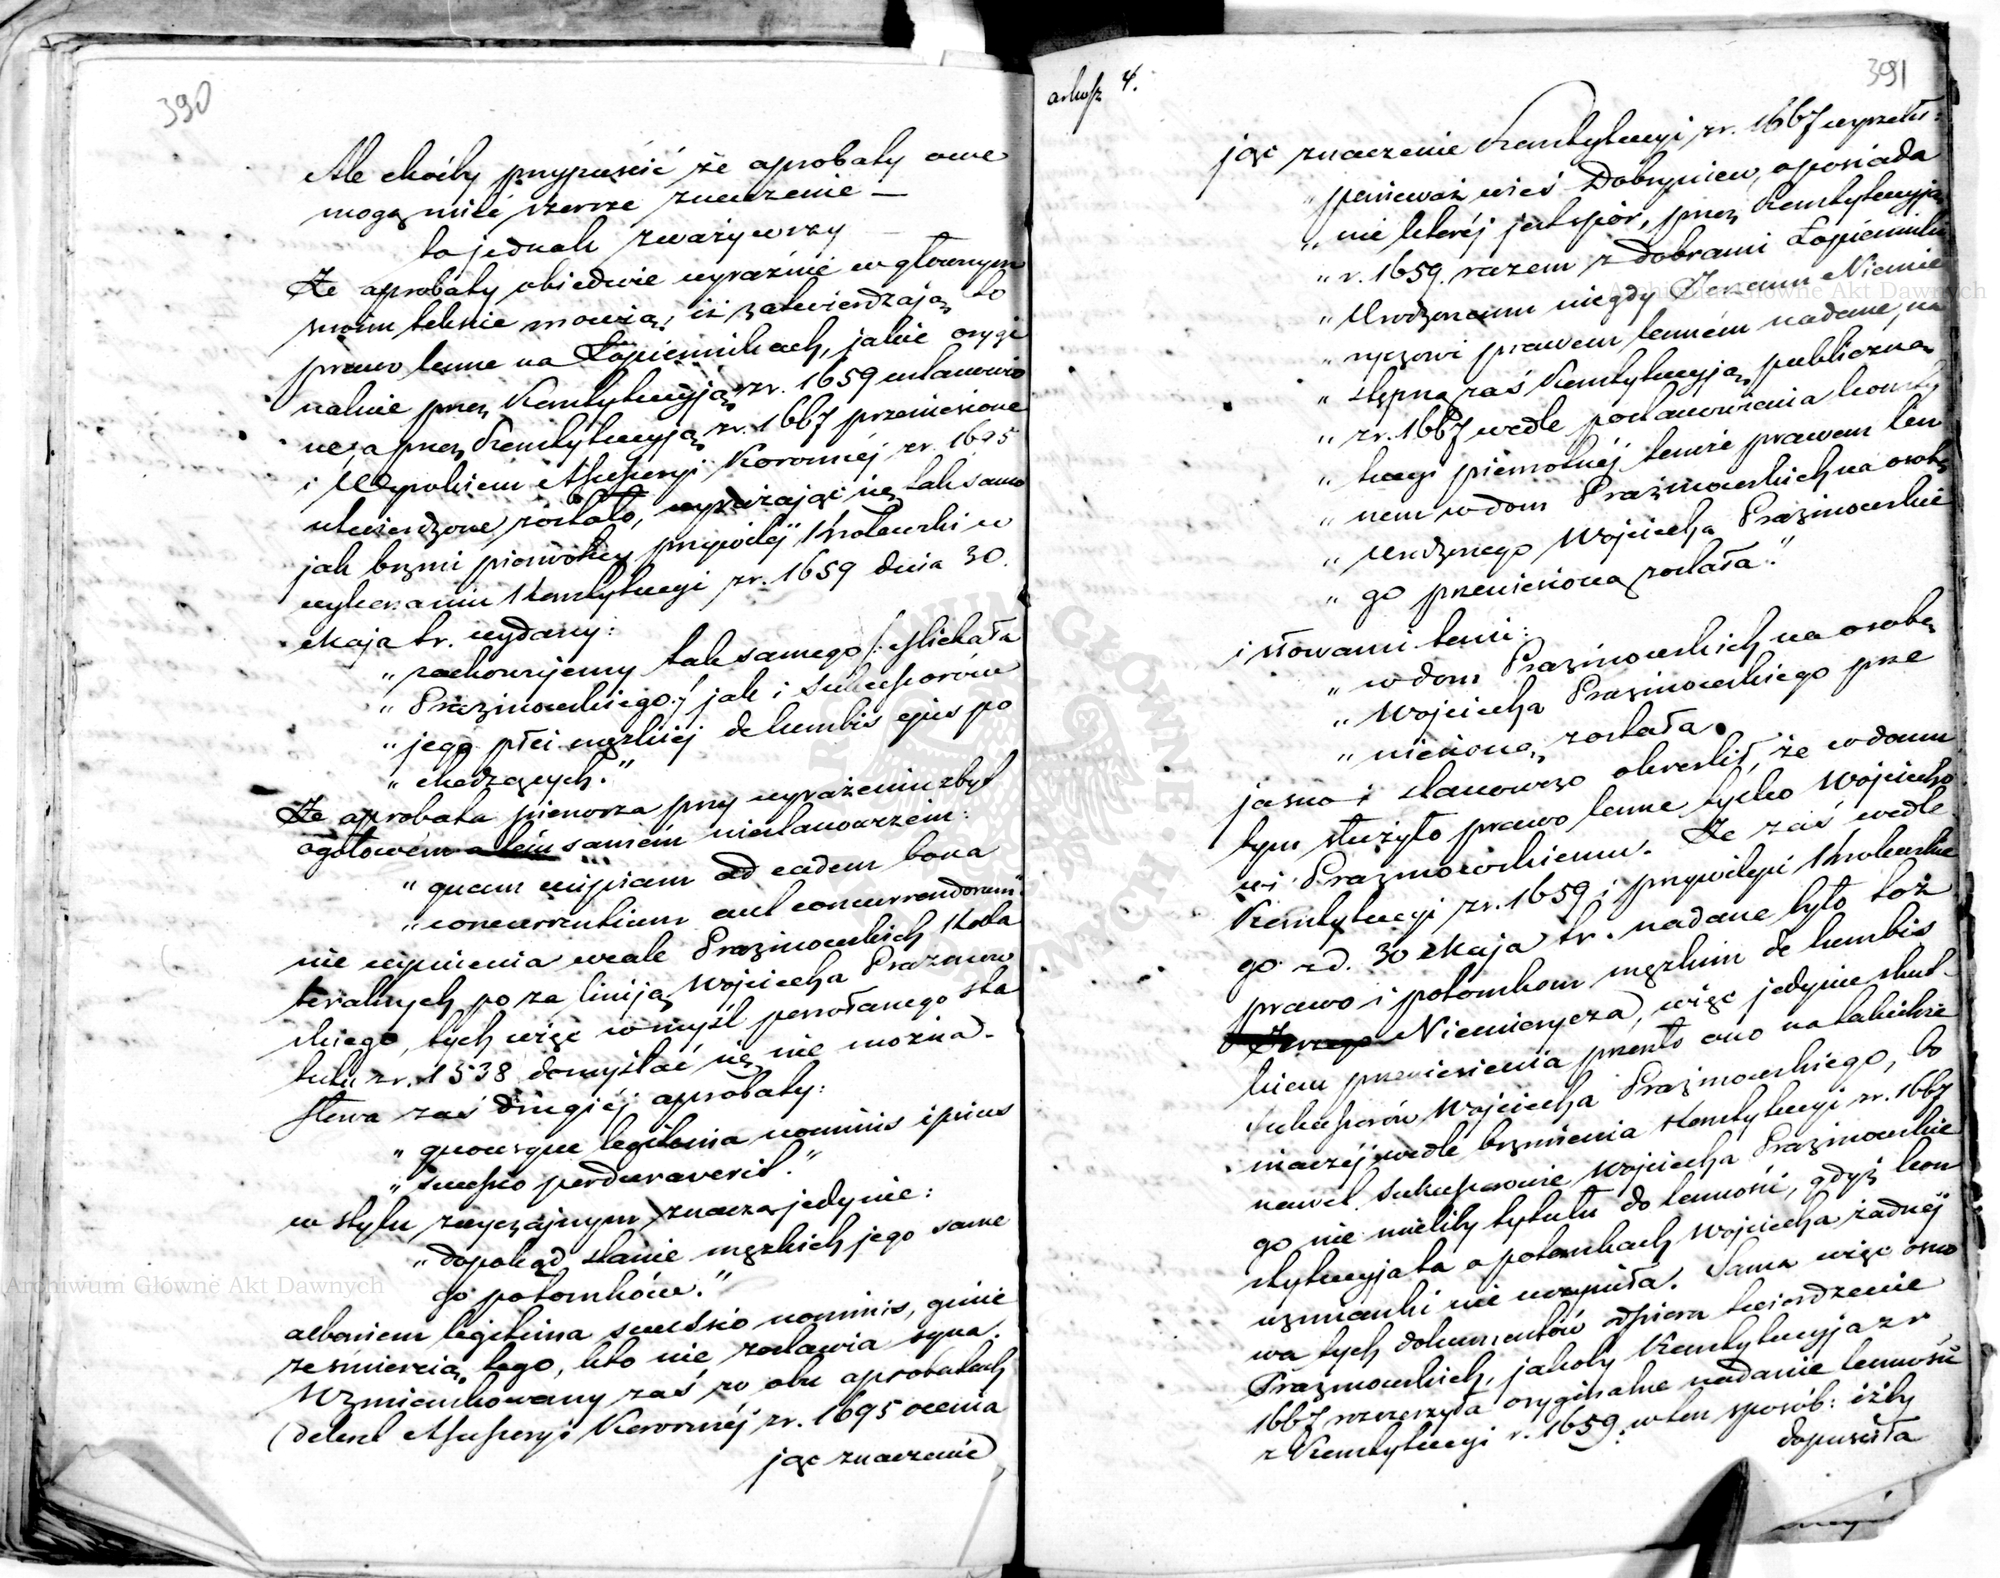 390
Ale choćby przypuścić że aprobaty owe
mogą mieć szersze znaczenie —
to jednak zważywszy —
Że aprobaty obiedwie wyraźnie w głównym
swoim tekście mówią, iż zatwierdzają to
prawo lenne na Łopiennikach, jakie orygi
nalnie przez Konstytucyją z r. 1659 ustanowio
ne, a przez Konstytucyją z r. 1667 przeniesione
i Wyrokiem Assessoryi Koronnéj z r. 1695
utwierdzone zostało, wyrażając się tak samo
jak brzmi pierwotny przywiléj Królewski w
wykonaniu Konstytucyi z r. 1659 dnia 30
Maja t.r. wydany:
„zachowujemy tak samego /: Michała
„Prażmowskiego :/ jak i sukcessorów
„jego płci męzkiéj de lumbis ejus po
„chodzących."
Że aprobata pierwsza przy wyrażeniu zbyt
ogółowém a tém samém niestanowczém:
„quam cuipiam ad eadem bona
„concurrentium aut concurrendorum"
nie wymienia wcale Prażmowskich Kolla
teralnych po za liniją Wojciecha Prażmow
skiego, tych więc w myśl powołanego sta
tutu z r. 1538 domyślać się nie można.
Słowa zaś drugiéj aprobaty:
„quousque legitima nominis ipsius
„successio perduraverit."
w stylu zwyczajnym znaczą jedynie:
„dopokąd stanie męzkich jego same
go potomków."
albowiem legitima successio nominis, ginie
ze śmiercią tego, kto nie zostawia syna.
Wzmiankowany zaś w obu aprobatach
(dekret Assessoryi Koronnéj z r. 1695 ocenia
jąc znaczenie
arkusz 4.
391
jąc znaczenie Konstytucyi z r. 1667 wyrzekł:
„ponieważ wieś Dobryniew, o posiada
„nie któréj jest spór, przez Konstytucyją
„r. 1659. razem z dobrami Łopienniki
„Urodzonemu niegdy Jerzemu Niemie
„ryczowi prawem lenném nadane, na
„stępną zaś Konstytucyją publiczną
„z r. 1667 wedle postanowienia konsty
„tucyi pierwotnéj temże prawem len
„nem w dom Prażmowskich na osobę
„Urodzonego Wojciecha Prażmowskie
„go przeniesioną została."
i słowami temi:
„w dom Prażmowskich na osobę
„Wojciecha Prażmowskiego prze
„niesioną została.
jasno i stanowczo określił, że w domu
tym służyło prawo lenne tylko Wojciecho
wi Prażmowskiemu. Że zaś wedle
Konstytucyi z r. 1659 i przywileju Królewskie
go z d. 30 Maja t.r. nadane było toż
prawo i potomkom męzkim de lumbis
Jerzego Niemierycza, więc jedynie skut
kiem przeniesienia przeszło ono na takichże
Sukcessorów Wojciecha Prażmowskiego, bo
inaczéj wedle brzmienia Konstytucyi z r. 1667
nawet Sukcessorowie Wojciecha Prażmowskie
go nie mieliby tytułu do lenności, gdyż kon
stytucyja ta o potomkach Wojciecha żadnéj
wzmianki nie uczyniła. Sama więc osno
wa tych dokumentów odpiera twierdzenie
Prażmowskich, jakoby Konstytucyja z r.
1667 rozszerzyła oryginalne nadanie lenności
z Konstytucyi r. 1659. w ten sposób: iżby
dopuściła
Archiwum Główne Akt Dawnych
Archiwum Główne Akt Dawnych